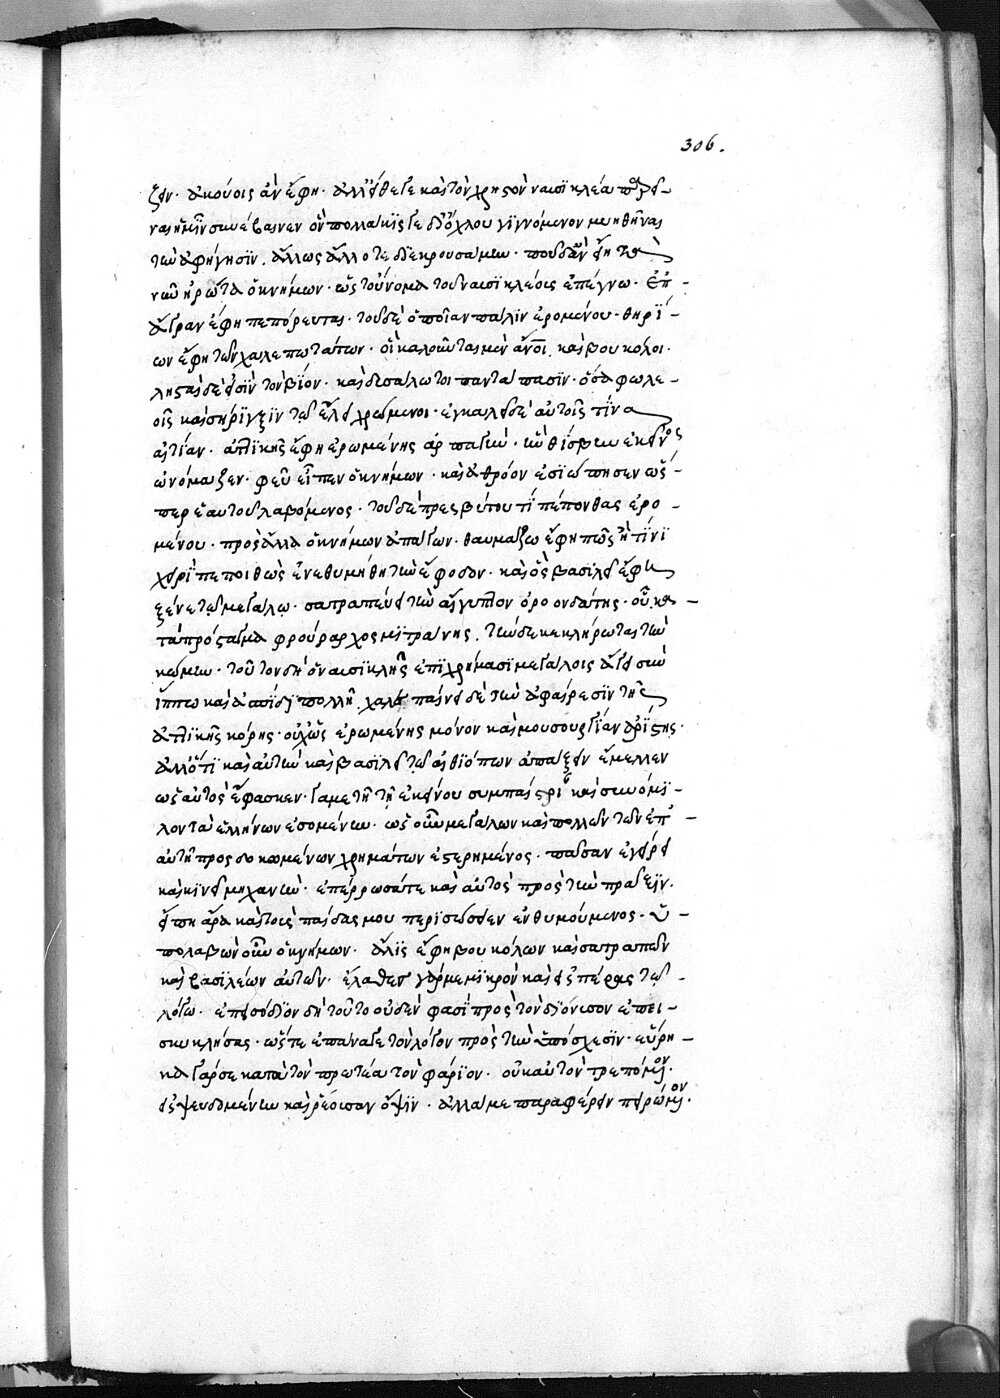 306.
ζειν. ἀκούοις ἂν ἔφη. ἀλλ' ἔθελγε καὶ τὸν χρηστὸν ναυσικλέα παρεῖ-
ναι ἡμῖν συνέβαινεν ὃν πολλακίς γε δι' ὄχλου γιγνόμενον μυηθῆναι
τὴν ἀφήγησιν. ἄλλως ἄλλοτε διεκρουσάμην. ποῦ δ' ἂν εἴη τὰ
νῦν ἠρώτα ὁ κνήμων. ὡς τοὔνομα τοῦ ναυσικλέοις ἐπέγνω. ἐπ'
ἄγραν ἔφη πεπόρευται. τοῦ δὲ ὁποῖαν πάλιν ἐρομένου. θηρί-
ων ἔφη τῶν χαλεπωτάτων. οἳ καλοῦνται μὲν ἄνοι. καὶ βουκόλοι.
λησταὶ δέ εἰσιν τὸν βίον. καὶ δυσάλωτοι παντάπασιν. ὅσα φωλε-
οῖς καὶ σήριγξιν τῷ ἕλει χρώμενοι. ἐγκαλεῖ δὲ αὐτοῖς τίνα
αἰτίαν. ἀττικῆς ἔφη ἐρωμένης ἁρπαγήν. ἣν θίσβην ἐκεῖνος
ὠνόμαζεν. φεῦ εἶπεν ὁ κνήμων. καὶ ἀθρόον ἐσιώπησεν ὥσ-
περ ἑαυτοῦ λαβόμενος. τοῦ δὲ πρεσβύτου τί πέπονθας ἐρο-
μένου. πρὸς ἄλλα ὁ κνήμων ἀπάγων. θαυμάζω ἔφη πῶς ἢ τίνι
χειρὶ πεποιθὼς ἐνεθυμήθη τὴν ἔφοδον. καὶ ὃς βασιλεῖ ἔφη
ξένε τῷ μεγάλω. σατραπεύει τὴν αἴγυπτον ὀροονδάτης. οὗ κατὰ
τὰ πρόσταγμα φρούραρχος μιτράνης. τήνδε κεκλήρωται τὴν
κώμην. τοῦτον δὴ ὁ ναυσικλῆς ἐπὶ χρήμασι μεγάλοις ἄγει σὺν
ἵππω καὶ ἀσπίδι πολλῆ. χαλεπαίνει δὲ τὴν ἀφαίρεσιν τῆς
ἀττικῆς κόρης. οὐχ ὡς ἐρωμένης μόνον καὶ μουσουργίαν ἀρίστης.
ἀλλ' ὅτι καὶ αὐτὴν καὶ βασιλεῖ τῷ αἰθιόπων ἀπάξειν ἔμελλεν
ὡς αὐτὸς ἔφασκεν. γαμετῆ τῆ ἐκείνου συμπαίστριαν καὶ συνόμι-
λον τὰ ἑλλήνων ἐσομένην. ὡς οὖν μεγάλων καὶ πολλῶν τῶν ἐπ'
αὐτῆ προσδοκωμένων χρημάτων ἐστερημένος. πᾶσαν ἐγείρει
καὶ κινεῖ μηχανήν. ἐπέρρωσά τε καὶ αὐτὸς πρὸς τὴν πρᾶξιν.
εἴπη ἄρα καὶ τοὺς παῖδάς μου περισώσειεν ἐνθυμούμενος. ὑ-
πολαβὼν οὖν ὁ κνήμων. ἅλις ἔφη βουκόλων καὶ σατραπῶν
καὶ βασιλέων αὐτῶν. ἔλαθες γάρ με μικρὸν καὶ εἰς πέρας τῷ
λόγω. ἐπεισόδιον δὴ τοῦτο οὐδὲν φασὶ πρὸς τὸν διόνυσον ἐπει-
σκυκλήσας. ὥστε ἐπάναγε τὸν λόγον πρὸς τὴν ὑπόσχεσιν. εὕρη-
κα γάρ σε κατὰ τὸν πρωτέα τὸν φάριον. οὐ κατ' αὐτὸν τρεπόμενον
εἰς ψευδομένην καὶ ῥέουσαν ὄψιν. ἀλλά με παραφέρειν πειρώμενον.